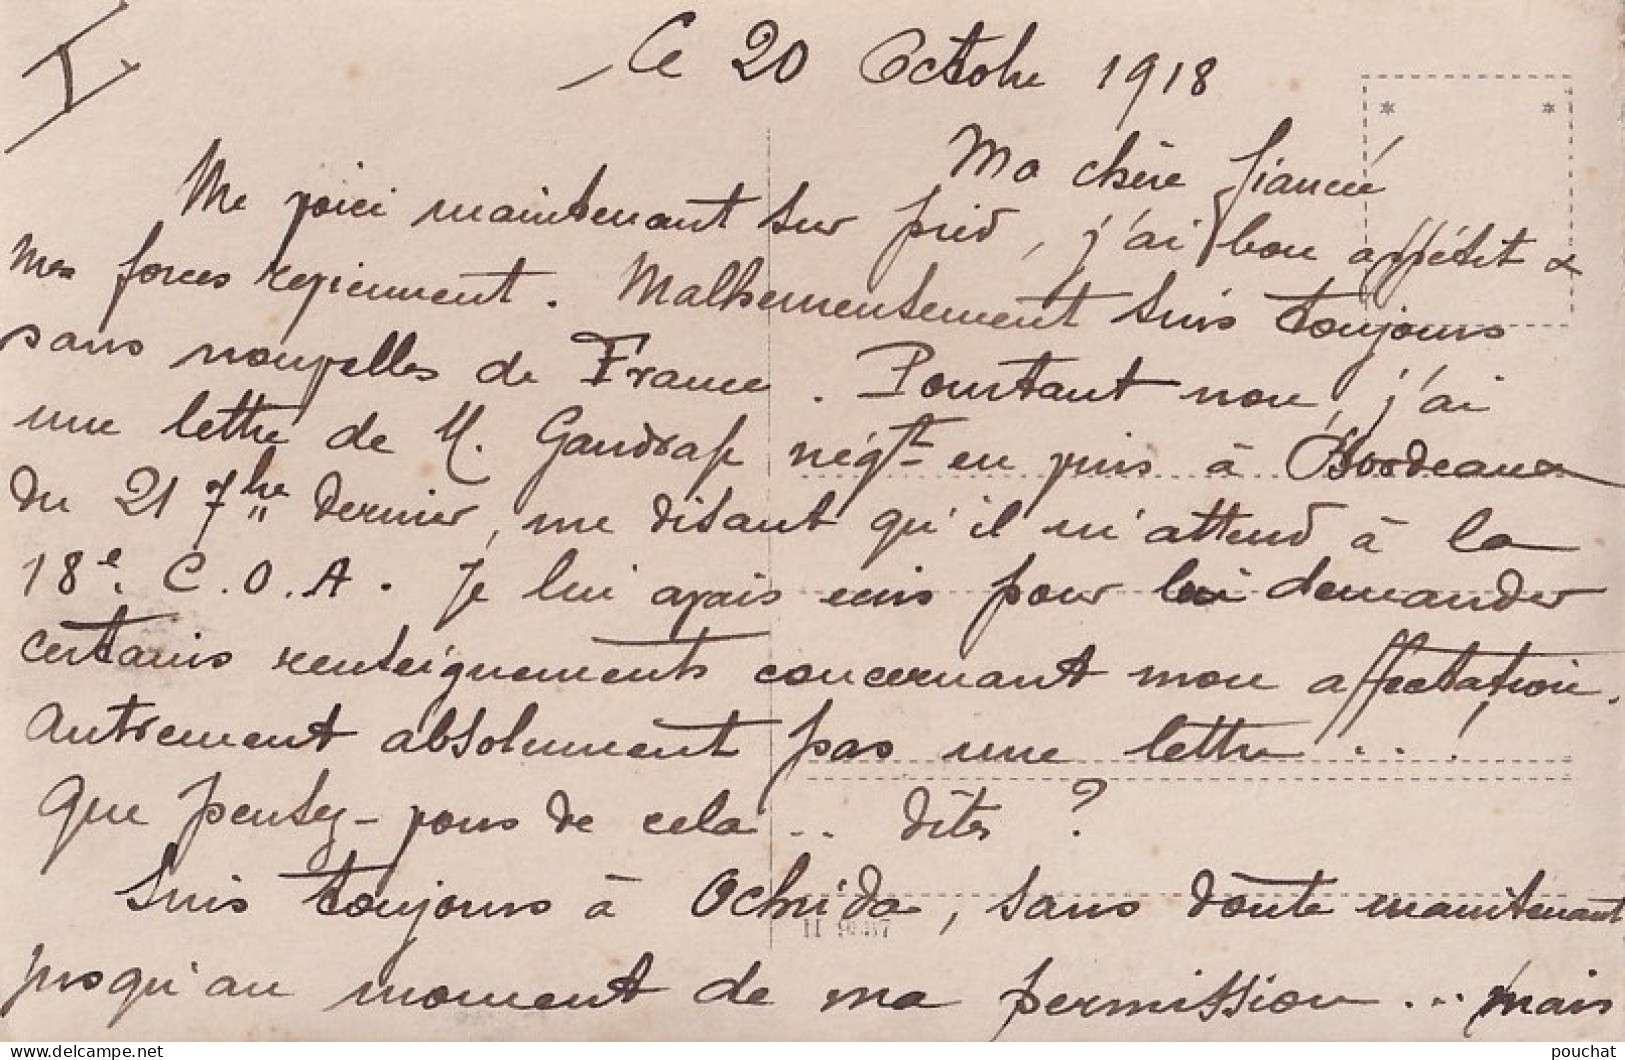 I
Le 20 Octobre 1918
Ma chère fiancée
Me voici maintenant sur pied, j'ai bon appétit &
mes forces reviennent. Malheureusement suis toujours
sans nouvelles de France. Pourtant non, j'ai
une lettre de M. Gaudrap négt en vins à Bordeaux
du 21 7bre dernier, me disant qu'il m'attend à la
18e C.O.A. Je lui avais écris pour lui demander
certains renseignements concernant mon affectation.
Autrement absolument pas une lettre ...!
Que pensez-vous de cela .. dites ?
Suis toujours à Ochrida, sans doute maintenant
jusqu'au moment de ma permission ... mais
delcampe.net
pouchat